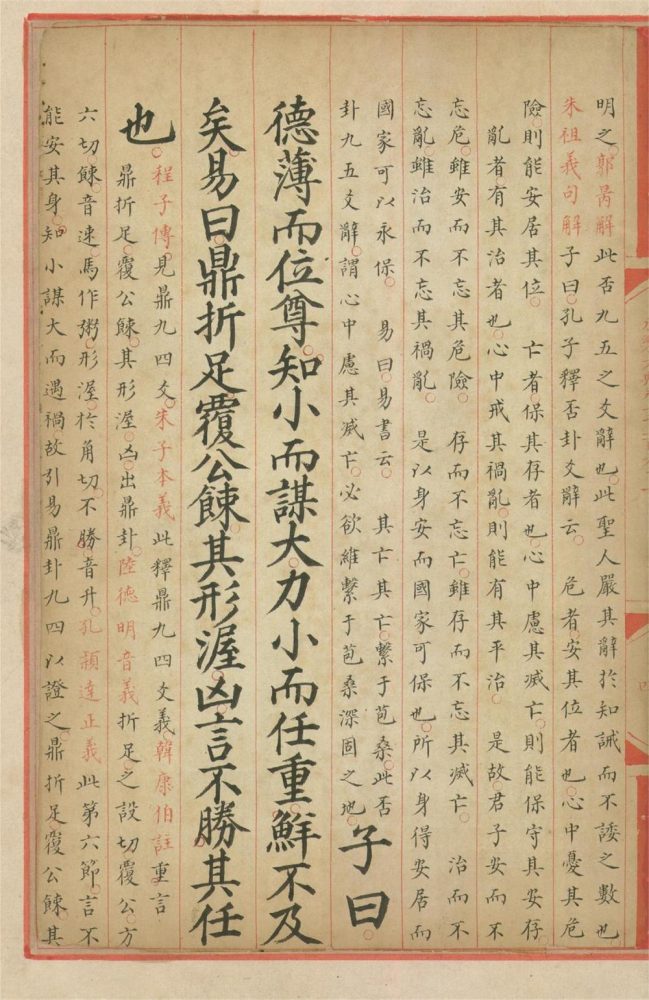 明之郭昺解此否九五之爻辭也此聖人嚴其辭於知誡而不諉之數也
朱祖義句解子曰孔子釋否卦爻辭云危者安其位者也心中憂其危
險則能安居其位亡者保其存者也心中慮其滅亡則能保守其安存
亂者有其治者也心中戒其禍亂則能有其平治是故君子安而不
忘危雖安而不忘其危險存而不忘亡雖存而不忘其滅亡治而不
忘亂雖治而不忘其禍亂是以身安而國家可保也所以身得安居而
國家可以永保易曰易書云其亡其亡繫于苞桑此否
卦九五爻辭謂心中慮其滅亡必欲維繫于苞桑深固之地子曰
德薄而位尊知小而謀大力小而任重鮮不及
矣易曰鼎折足覆公餗其形渥凶言不勝其任
也程子傳見鼎九四爻朱子本義此釋鼎九四爻義韓康伯註重言
鼎折足覆公餗其形渥凶出鼎卦陸德明音義折足之設切覆公方
六切餗音速馬作粥形渥於角切不勝音升孔頴達正義此第六節言不
能安其身知小謀大而遇禍故引易鼎卦九四以證之鼎折足覆公餗其